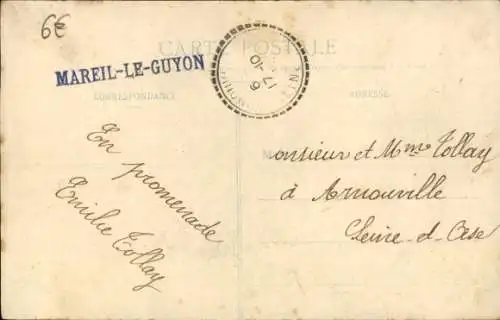 6€
CARTE POSTALE
MAREIL-LE-GUYON
17-10
9
CORRESPONDANCE
ADRESSE
En promenade
Emilie Tollay
Monsieur et Mme Tollay
à Arnouville
Seine-et-Oise